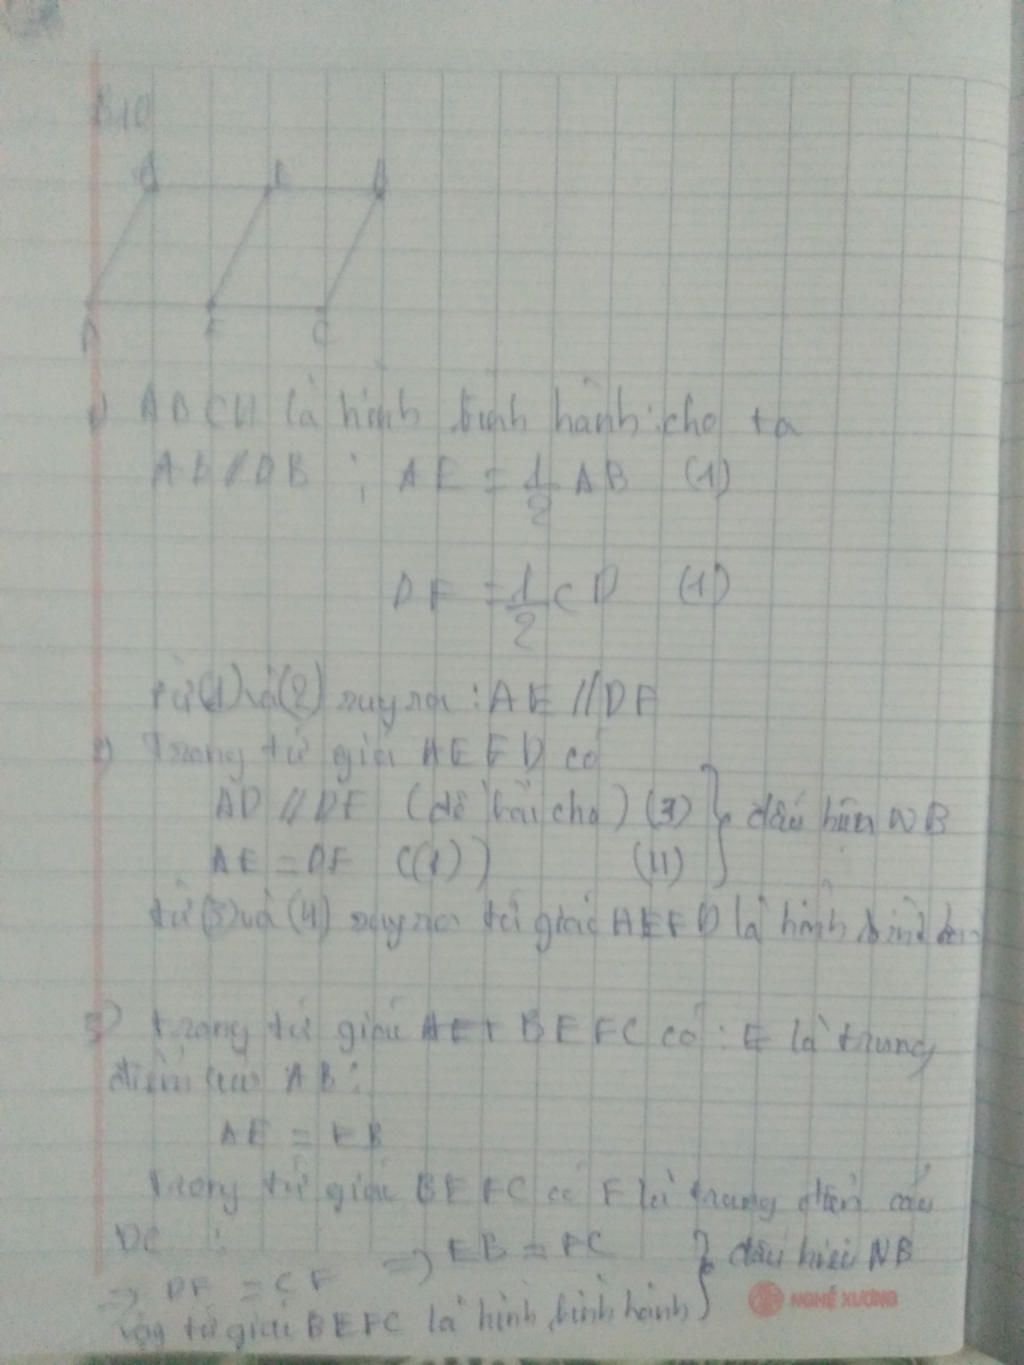 B10
E
B
A
F
C
ABCD là hình bình hành cho ta
; AE = 1/2 AB (1)
DF = 1/2 CD (1)
từ (1) và (2) suy ra : AE // DF
2) Trong tứ giác AEFD có
AD // DF (đề bài cho) (3) } dấu hiệu NB
AE = DF ((1)) (4)
từ (3) và (4) suy ra tứ giác AEFD là hình bình
3) trong tứ giác BEFC có : E là trung
điểm AB :
AE = EB
trong tứ giác BEFC có F là trung điểm
DC :
=> EB = FC } dấu hiệu NB
=> DF = CF
Vậy tứ giác BEFC là hình bình hành
NGHÉ XƯƠNG